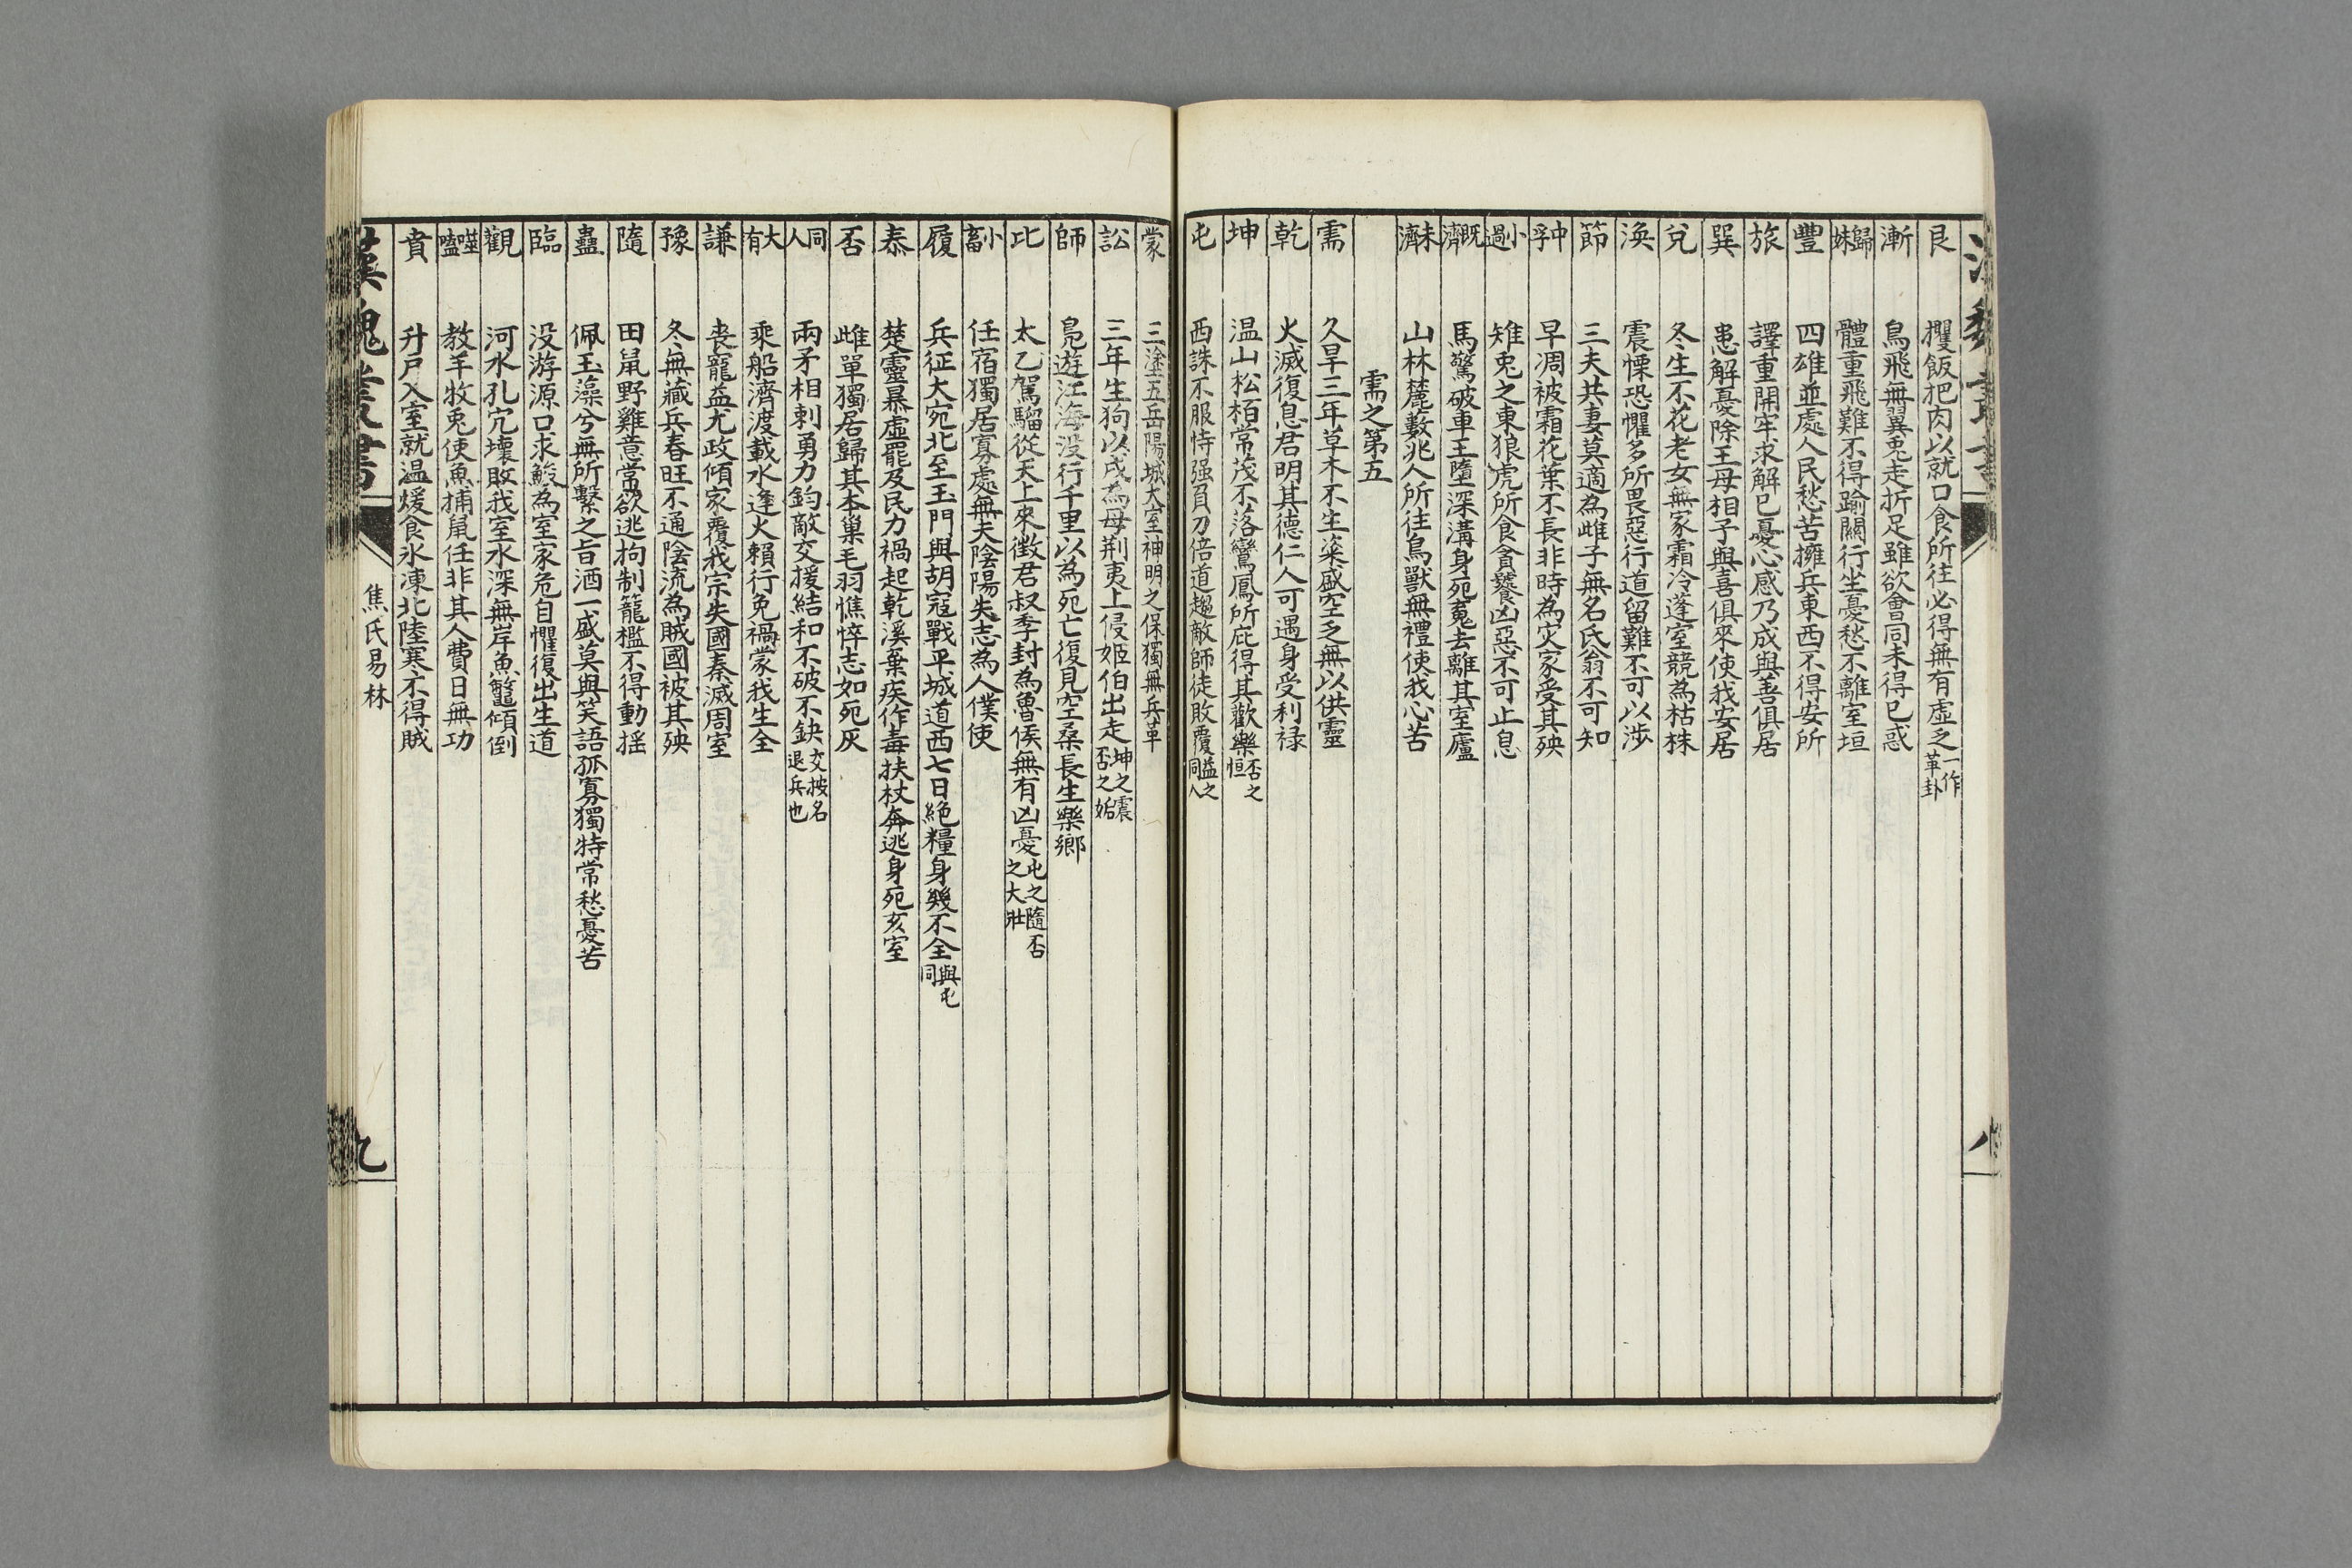 艮 攫飯把肉以就口食所往必得無有虛乏一作革卦
漸 鳥飛無翼兎走折足雖欲會同未得已惑
歸妹 體重飛難不得踰關行坐憂愁不離室垣
豐 四雄並處人民愁苦擁兵東西不得安所
旅 譯重開牢求解已憂心感乃成與善俱居
巽 患解憂除王母相予與喜俱來使我安居
兌 冬生不花老女無家霜冷蓬室競為枯株
渙 震慄恐懼多所畏惡行道留難不可以涉
節 三夫共妻莫適為雌子無名氏翁不可知
中孚 早凋被霜花葉不長非時為灾家受其殃
小過 雉兎之東狼虎所食貪饕凶惡不可止息
既濟 馬驚破車王墮深溝身死䰟去離其室廬
未濟 山林麓藪兆人所往鳥獸無禮使我心苦
需之第五
需 久旱三年草木不生粢盛空乏無以供靈
乾 火滅復息君明其德仁人可遇身受利祿
坤 温山松栢常茂不落鸞鳳所庇得其歡樂否之恒
屯 西誅不服恃强負力倍道趨敵師徒敗覆益之同人
蒙 三塗五岳陽城大室神明之保獨無兵革
訟 三年生狗以戌為母荆夷上侵姬伯出走坤之震否之姤
師 鳬遊江海没行千里以為死亡復見空桑長生樂鄉
比 太乙駕騮從天上來徵君叔季封為魯侯無有凶憂屯之隨否之大壯
小畜 任宿獨居寡處無夫陰陽失志為人僕使
履 兵征大宛北至玉門與胡寇戰平城道西七日絕糧身幾不全與屯同
泰 楚靈暴虛罷及民力禍起乾溪棄疾作毒扶杖奔逃身死亥室
否 雌單獨居歸其本巢毛羽憔悴志如死灰
同人 兩矛相刺勇力鈞敵交援結和不破不缺交按名退兵也
大有 乘船濟渡載水逢火賴行免禍蒙我生全
謙 喪寵益尤政傾家覆我宗失國秦滅周室
豫 冬無藏兵春旺不通陰流為賊國被其殃
隨 田鼠野雞意常欲逃拘制籠檻不得動揺
蠱 佩玉蘂兮無所繫之旨酒一盛莫與笑語孤寡獨特常愁憂苦
臨 没游源口求鯼為室家危自懼復出生道
觀 河水孔穴壞敗我室水深無岸魚鼈傾倒
噬嗑 教羊牧兎使魚捕鼠任非其人費日無功
賁 升戶入室就温煖食氷凍北陸寒不得賊
漢魏叢書 焦氏易林 九